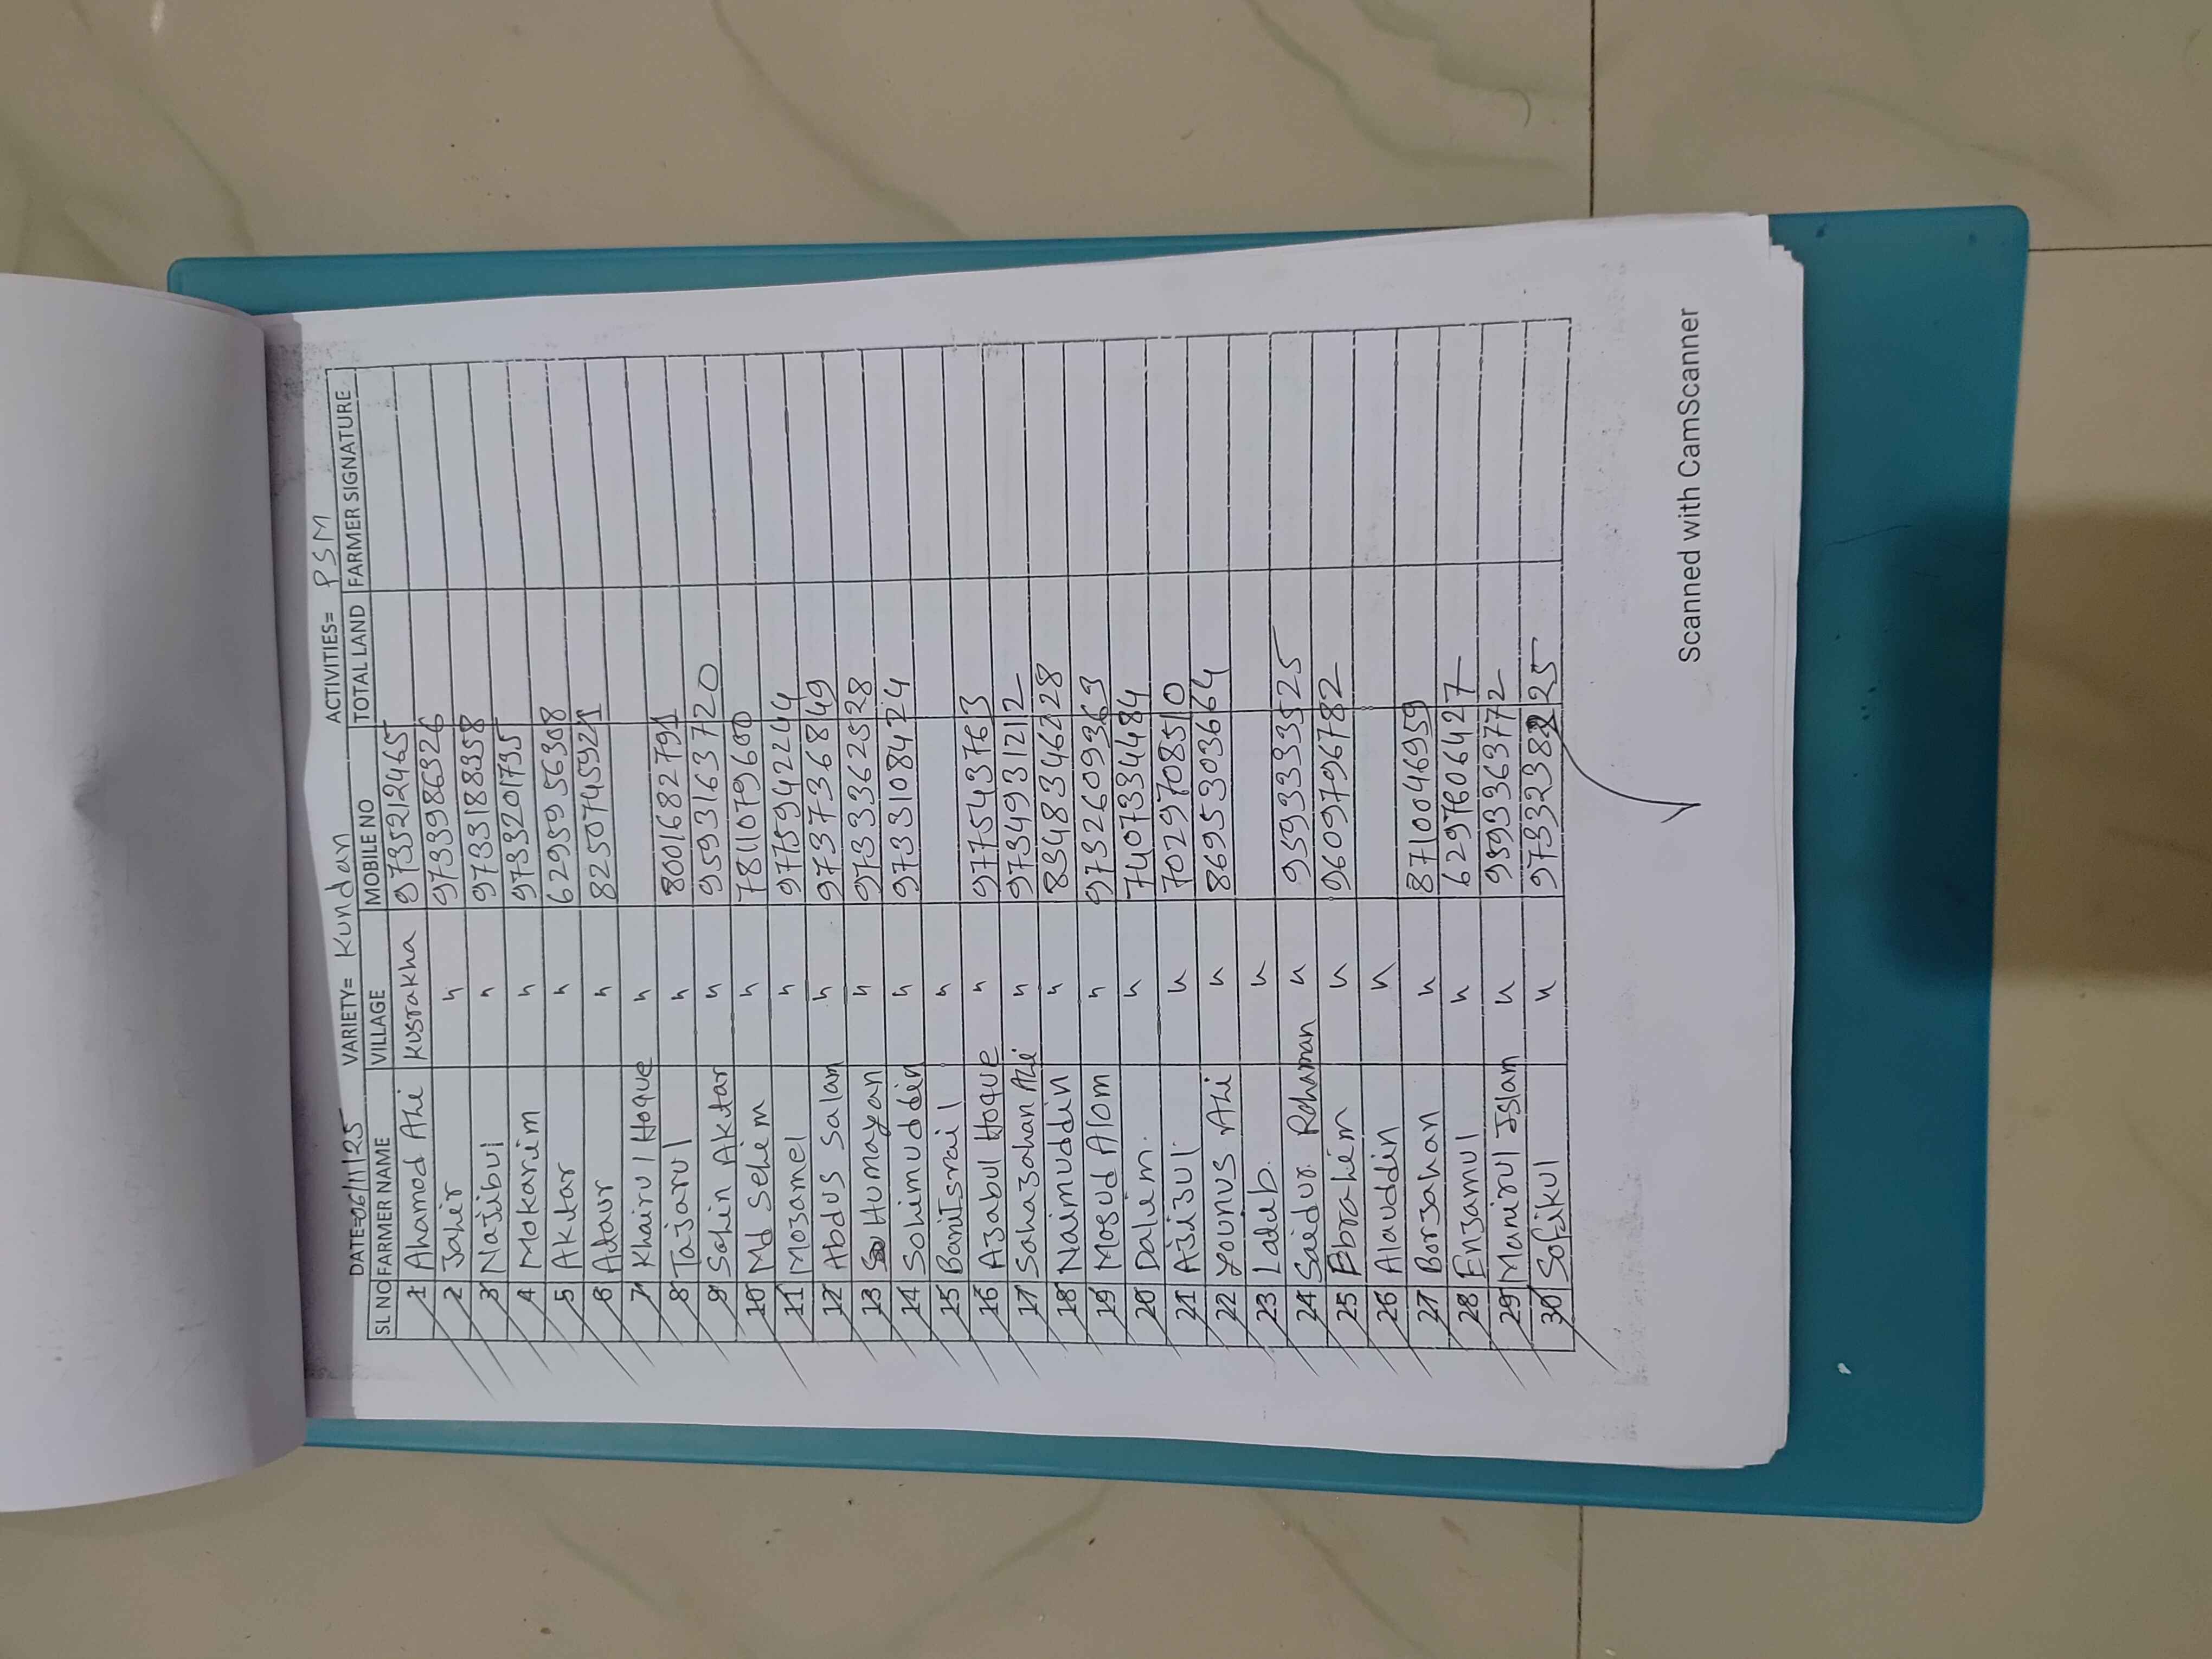 DATE=06/11/25 VARIETY= Kundan ACTIVITIES= PSM
SL NO FARMER NAME VILLAGE MOBILE NO TOTAL LAND FARMER SIGNATURE
1 Ahamod Ali Kusrakha 9735212465
2 Jahir " 9733986326
3 Najibul " 9733188358
4 Mokarim " 9733201735
5 Aktar " 6295956308
6 Ataur " 8250745921
7 Khairul Hoque "
8 Tajarul " 8001682791
9 Sahin Aktar " 9593163720
10 Md Selim " 7811079600
11 Mozamel " 9775942244
12 Abdus Salam " 9737736849
13 Humayan " 9733362528
14 Solimuddin " 9733108424
15 Bani Israil "
16 Azabul Hoque " 9777543763
17 Sahazahan Ali " 9734931212
18 Naimuddin " 8348346228
19 Mosud Alom " 9732609363
20 Dalim. " 7407334484
21 Azizul. " 7029708510
22 Younus Ali " 8695303664
23 Lateb. "
24 Saidur. Rahaman " 9593333525
25 Ebrahim " 9609796782
26 Alauddin "
27 Borjahan " 8710046959
28 Enzamul " 6297606427
29 Manirul Islam " 9593363772
30 Sofikul " 9733238225
Scanned with CamScanner